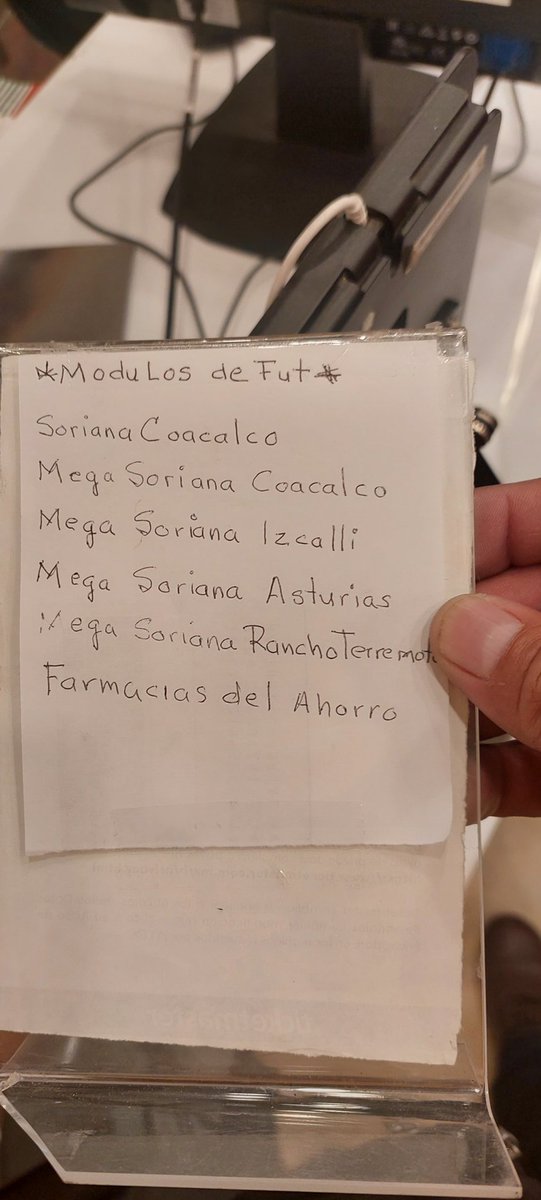 *Modulos de Fut*
Soriana Coacalco
Mega Soriana Coacalco
Mega Soriana Izcalli
Mega Soriana Asturias
Mega Soriana Rancho Terremot
Farmacias del Ahorro